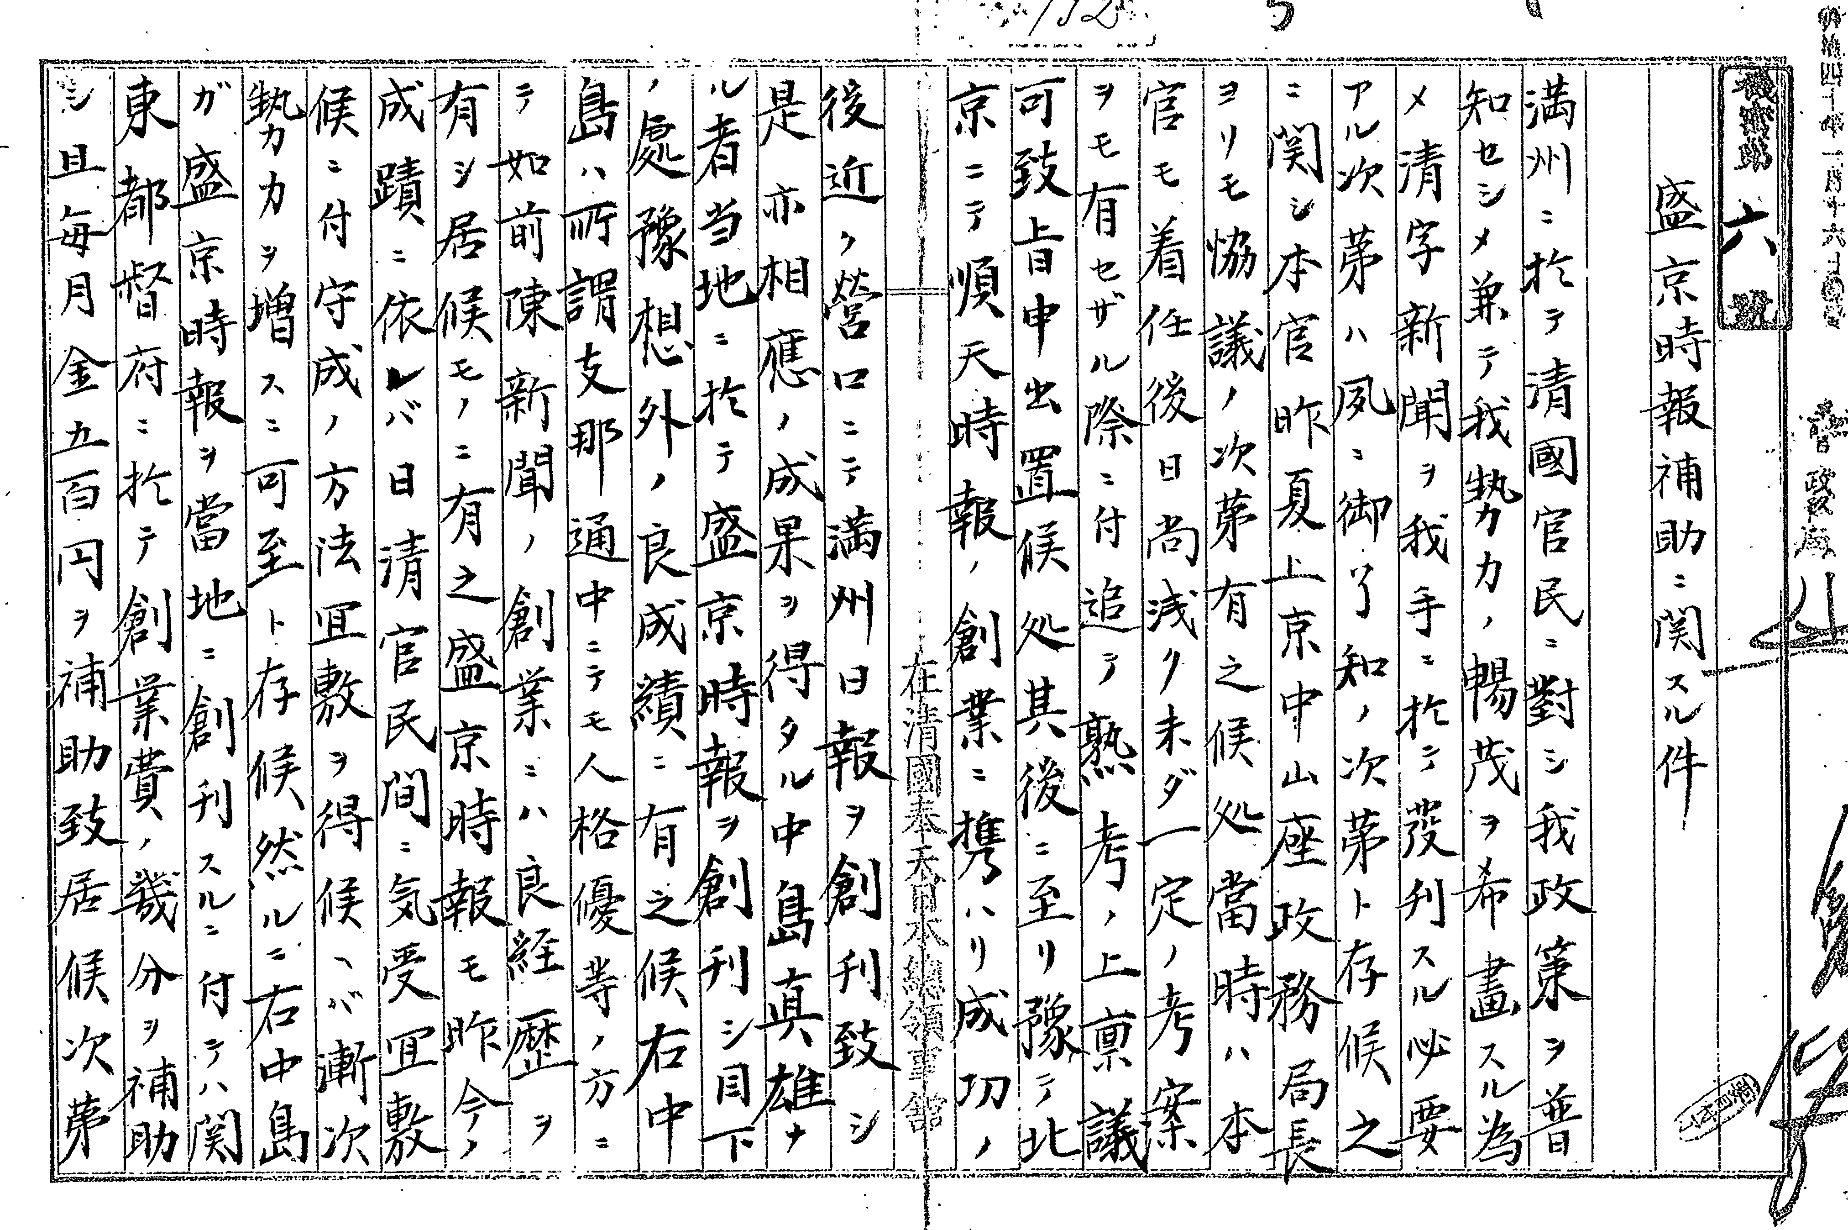 明治四十年一月十六日
機密第六號
政務局
盛京時報補助ニ関スル件
満州ニ於テ清國官民ニ對シ我政策ヲ普
知セシメ兼テ我勢力ノ暢茂ヲ希畫スル為
メ清字新聞ヲ我手ニ於テ發刊スル必要
アル次第ハ夙ニ御了知ノ次第ト存候之
ニ関シ本官昨夏上京中山座政務局長
ヨリモ協議ノ次第有之候処當時ハ本
官モ着任後日尚浅ク未ダ一定ノ考案
ヲモ有セザル際ニ付追テ熟考ノ上禀議
可致旨申出置候処其後ニ至リ豫テ北
京ニテ順天時報ノ創業ニ携ハリ成功ノ
在清國奉天日本總領事館
後近ク營口ニテ満州日報ヲ創刊致シ
是亦相應ノ成果ヲ得タル中島真雄ナ
ル者当地ニ於テ盛京時報ヲ創刊シ目下
ノ處豫想外ノ良成績ニ有之候右中
島ハ所謂支那通中ニテモ人格優等ノ方ニ
テ如前陳新聞ノ創業ニハ良経歴ヲ
有シ居候モノニ有之盛京時報モ昨今ノ
成蹟ニ依レバ日清官民間ニ気受宜敷
候ニ付守成ノ方法宜敷ヲ得候ハバ漸次
勢力ヲ増スニ可至ト存候然ルニ右中島
ガ盛京時報ヲ當地ニ創刊スルニ付テハ関
東都督府ニ於テ創業費ノ幾分ヲ補助
シ且毎月金五百円ヲ補助致居候次第